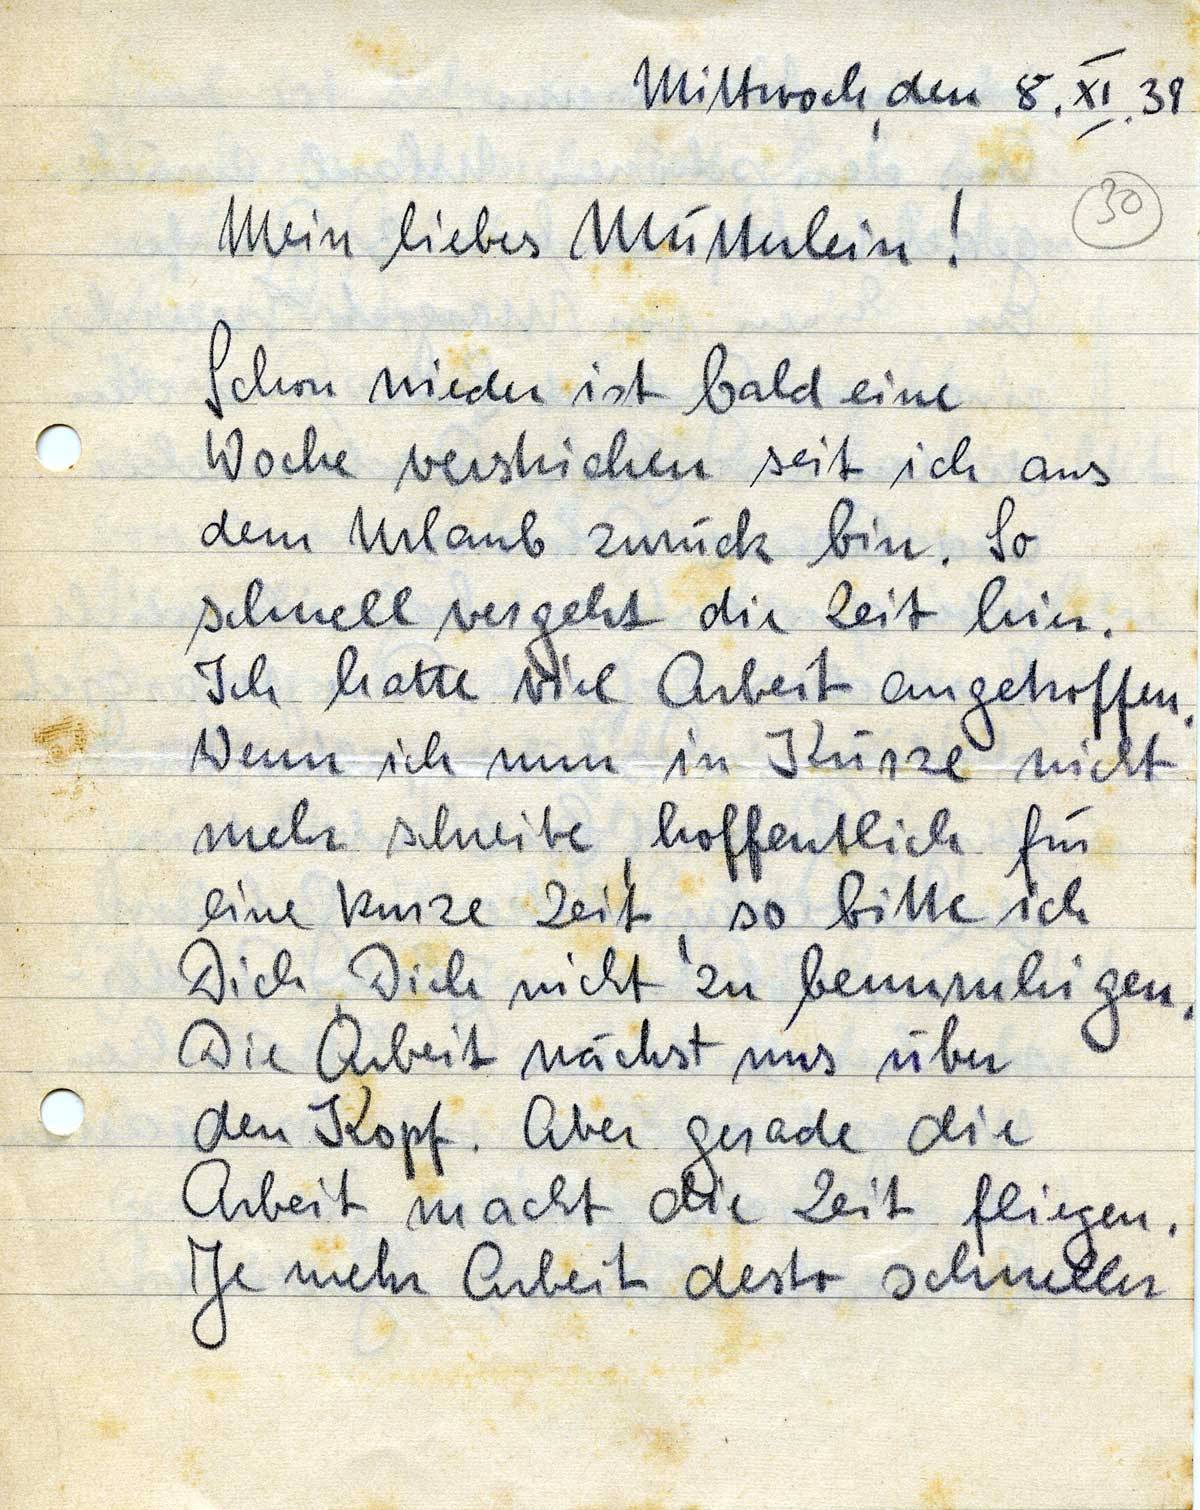 Mittwoch, den 8. XI. 39
30
Mein liebes Mütterlein!
Schon wieder ist bald eine
Woche verstrichen seit ich aus
dem Urlaub zurück bin. So
schnell vergeht die Zeit hin.
Ich hatte viel Arbeit angetroffen.
Wenn ich nun in Kürze nicht
mehr schreibe, hoffentlich für
eine kurze Zeit, so bitte ich
Dich, Dich nicht zu beunruhigen.
Die Arbeit wächst uns über
den Kopf. Aber gerade die
Arbeit macht die Zeit fliegen.
Je mehr Arbeit desto schneller